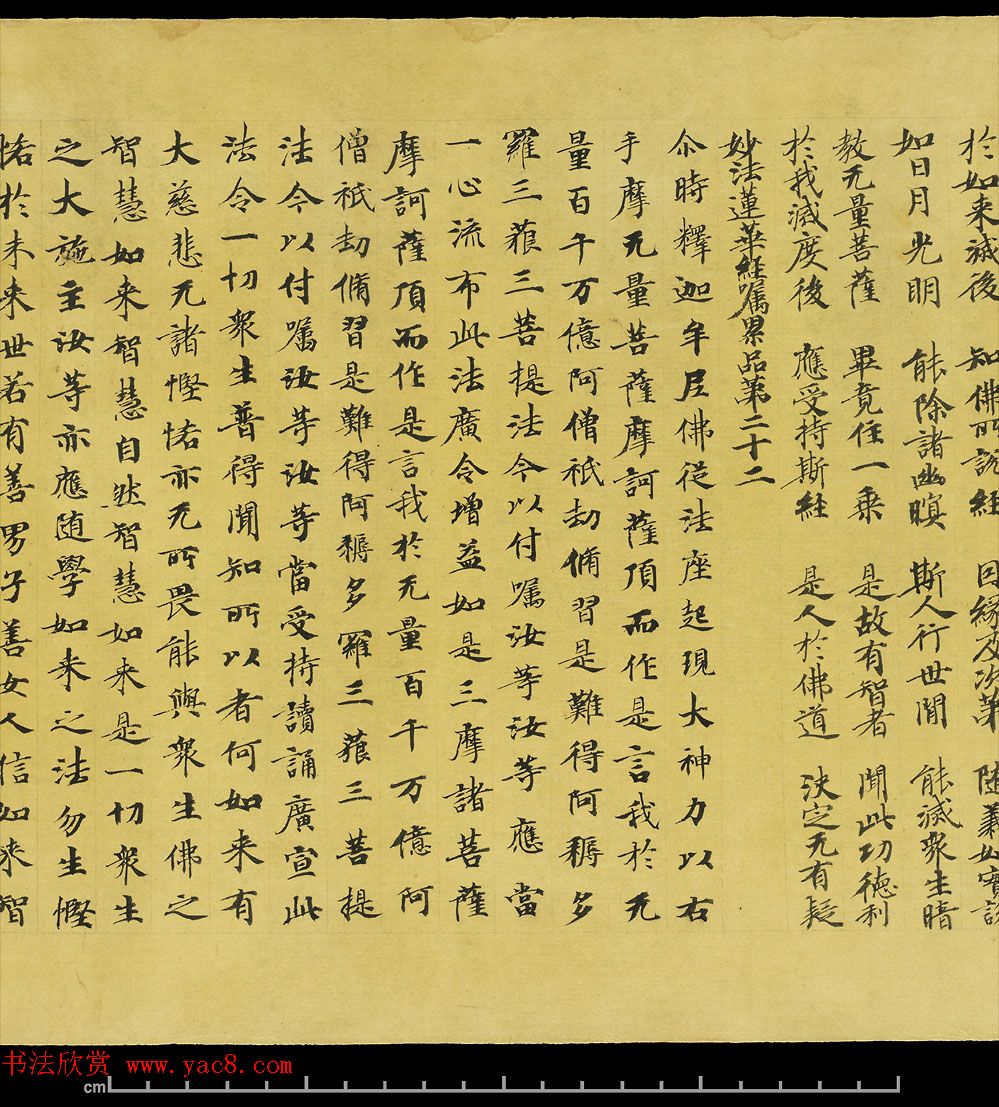 於如来滅後 知佛所說経 因緣及次第 随義如實說
如日月光明 能除諸幽暝 斯人行世間 能滅衆生暗
教无量菩薩 畢竟住一乗 是故有智者 聞此功德利
於我滅度後 應受持斯経 是人於佛道 決定无有疑
妙法蓮華経嘱累品第二十二
尒時釋迦牟尼佛従法座起現大神力以右
手摩无量菩薩摩訶薩頂而作是言我於无
量百千万億阿僧祇劫脩習是難得阿耨多
羅三藐三菩提法今以付嘱汝等汝等應當
一心流布此法廣令增益如是三摩諸菩薩
摩訶薩頂而作是言我於无量百千万億阿
僧祇劫脩習是難得阿耨多羅三藐三菩提
法今以付嘱汝等汝等當受持讀誦廣宣此
法令一切衆生普得聞知所以者何如来有
大慈悲无諸慳悋亦无所畏能與衆生佛之
智慧如来智慧自然智慧如来是一切衆生
之大施主汝等亦應随學如来之法勿生慳
悋於未来世若有善男子善女人信如来智
书法欣赏 www.yac8.com
cm